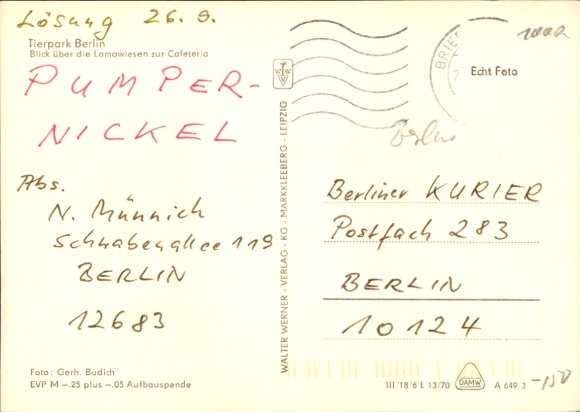 Lösung 26.9.
Tierpark Berlin
Blick über die Lamawiesen zur Cafeteria
PUMPER-
NICKEL
Abs.
N. Münnich
Schwabenallee 119
BERLIN
12683
Foto: Gerh. Budich
EVP M –.25 plus –.05 Aufbauspende
WALTER WERNER - VERLAG - KG - MARKKLEEBERG - LEIPZIG
BRIEF
Echt Foto
Berlin
Berliner KURIER
Postfach 283
BERLIN
10124
III/18/6 L 13/70
DAMW
A 649.3
-150